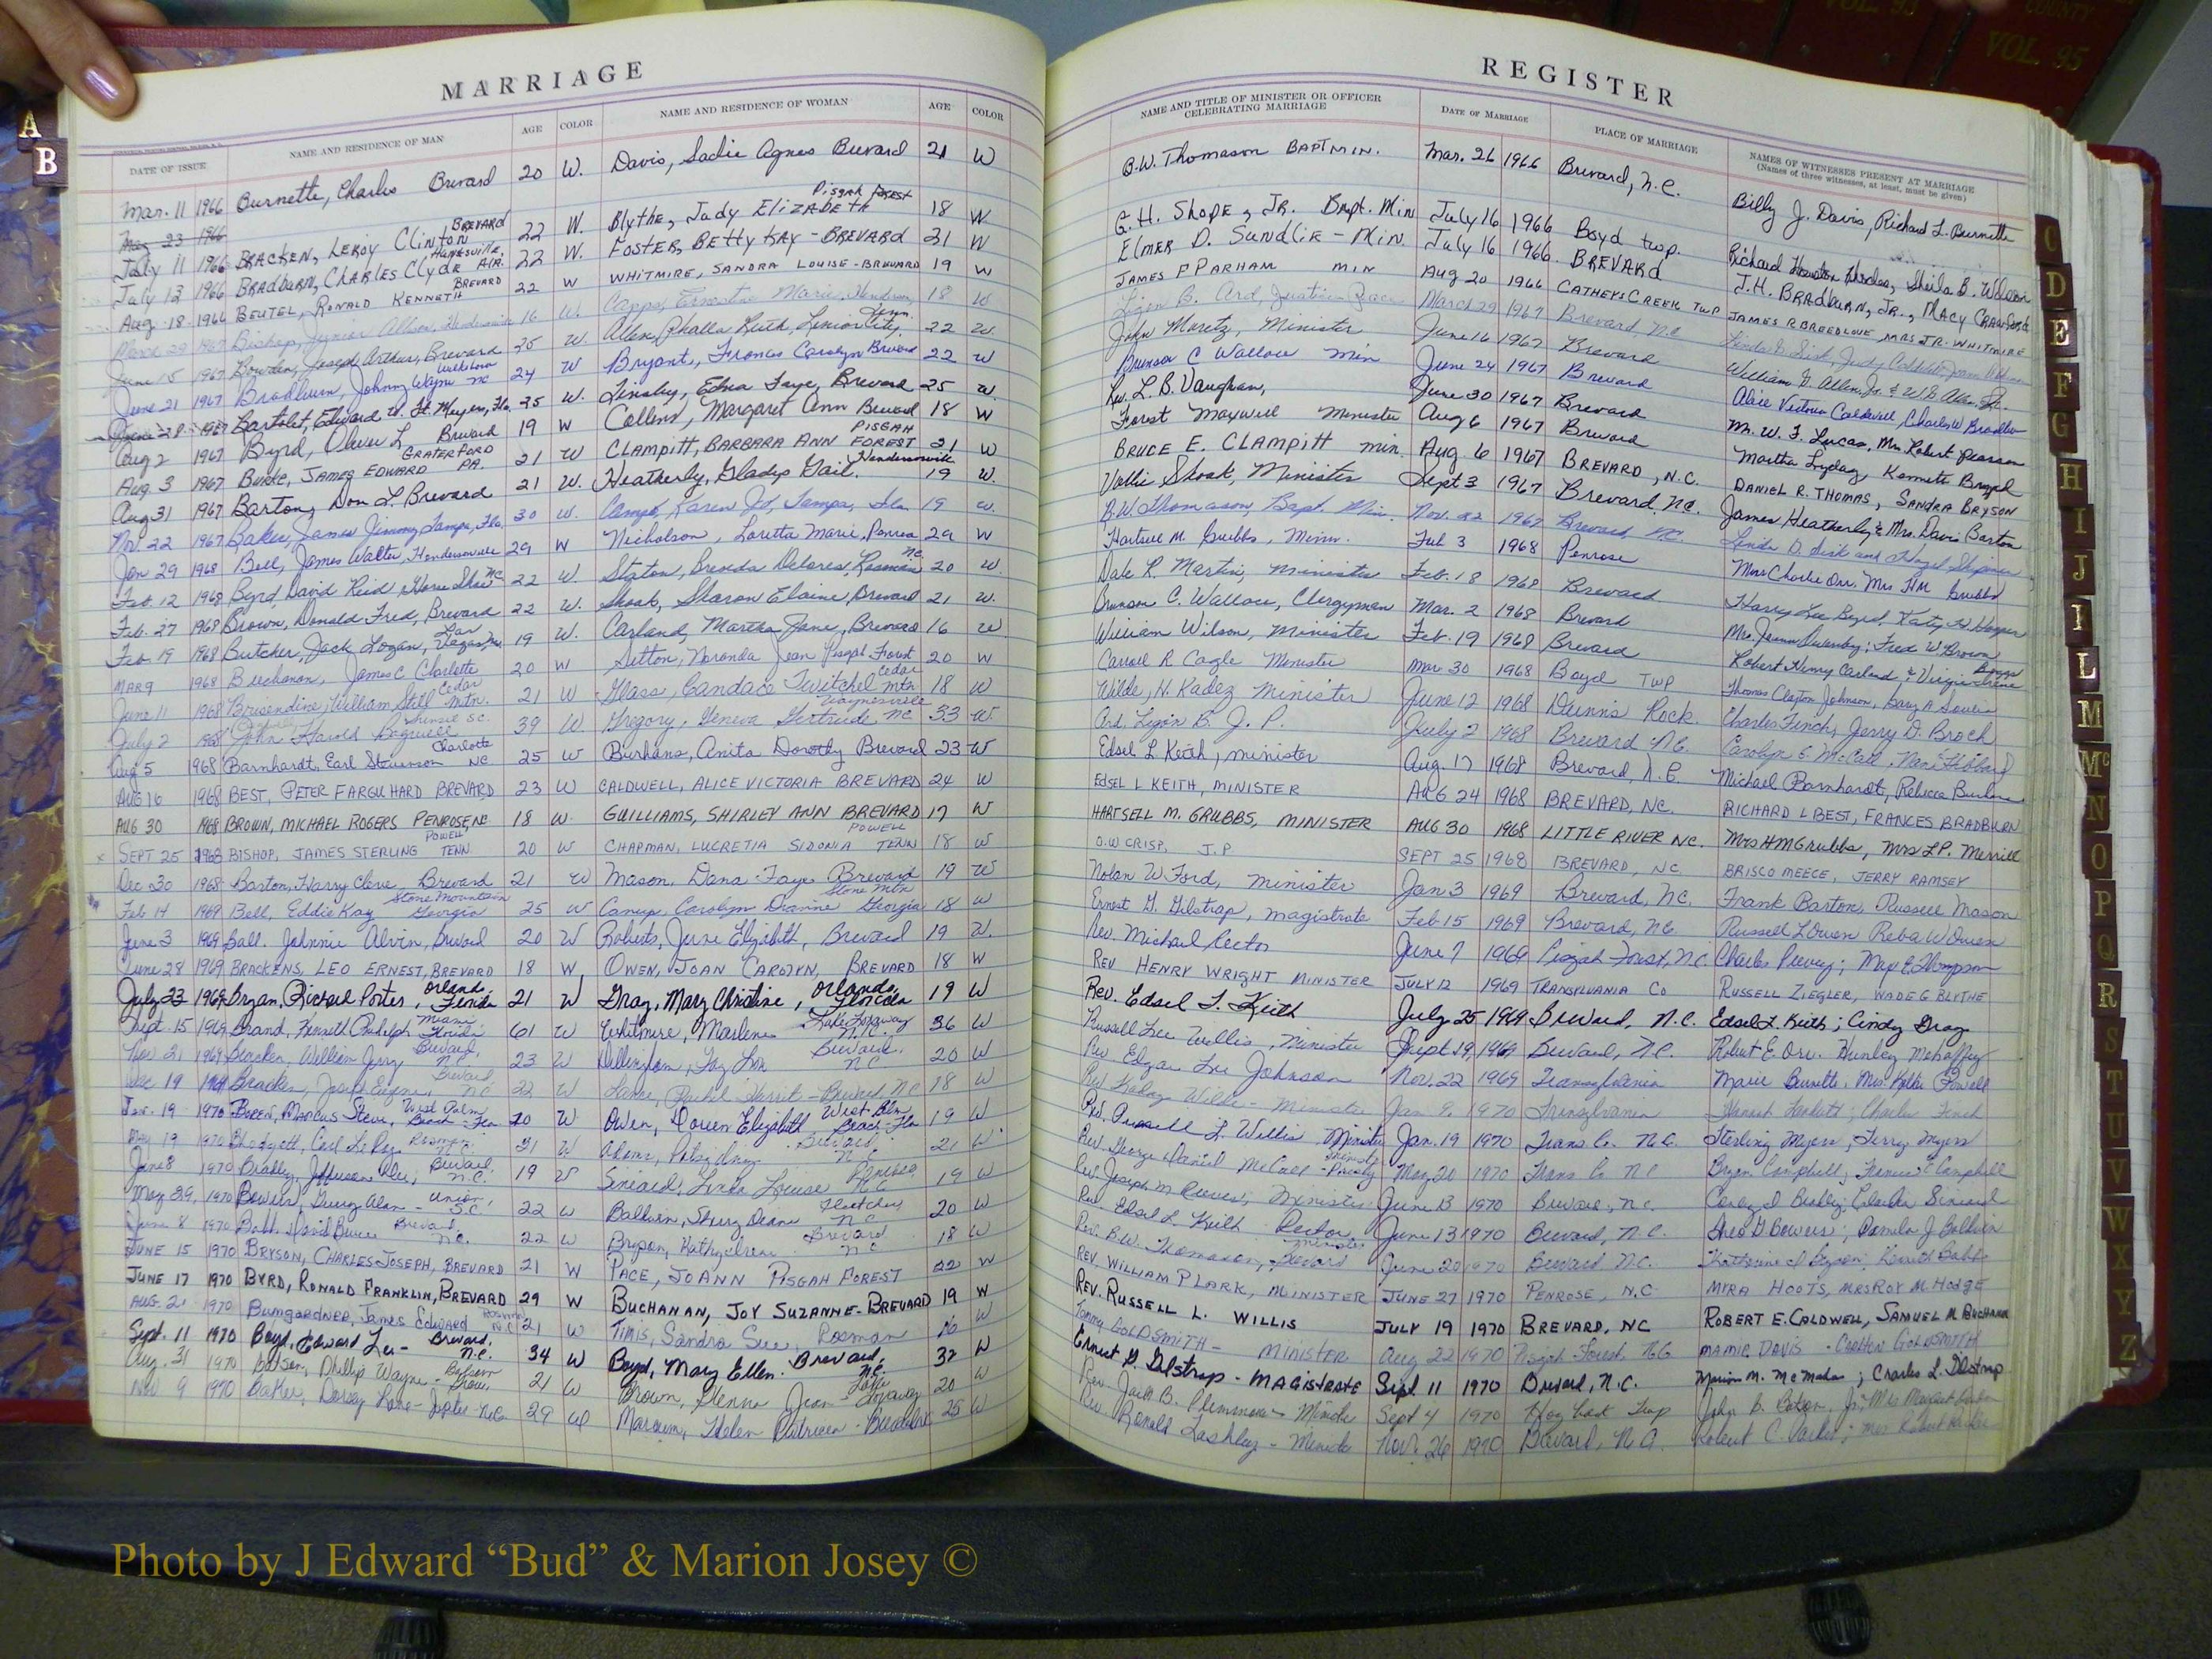 MARRIAGE
REGISTER
COUNTY
VOL. 95
A
B
DATE OF ISSUE NAME AND RESIDENCE OF MAN AGE COLOR NAME AND RESIDENCE OF WOMAN AGE COLOR NAME AND TITLE OF MINISTER OR OFFICER CELEBRATING MARRIAGE DATE OF MARRIAGE PLACE OF MARRIAGE NAMES OF WITNESSES PRESENT AT MARRIAGE (Names of three witnesses, at least, must be given)
Mar. 11 1966 Burnette, Charles Brevard 20 W. Davis, Sadie Agnes Brevard 21 W B.W. Thomason BAPT MIN. Mar. 26 1966 Brevard, N.C. Billy J. Davis, Richard L. Burnette
May 23 1966
July 11 1966 BRACKEN, LEROY CLINTON BREVARD 22 W. Blythe, Judy ELIZABETH Pisgah FOREST 18 W G. H. SHOPE, JR. Bapt. Min July 16 1966 Boyd twp. Richard Rhodes, Sheila B. Wilson
July 13 1966 BRADBURN, CHARLES CLYDE ALA. 22 W. FOSTER, BETTY KAY - BREVARD 21 W ELMER D. SUNDLIE - MIN. July 16 1966. BREVARD J.H. BRADBURN, JR., MACY CRAWFORD
Aug. 18 1966 BEUTEL, RONALD KENNETH BREVARD 22 W WHITMIRE, SANDRA LOUISE - BREVARD 19 W JAMES F PARHAM MIN Aug 20 1966 CATHEYS CREEK TWP JAMES R BREEDLOVE MRS JR. WHITMIRE
March 29 1967 Bishop, Junior 16 W. Capps, Ernestine Marie, 18 W Ligon B. Ard, Justice Peace March 29 1967 Brevard, N.C.
June 15 1967 Bowden, Joseph Arthur, Brevard 25 W. Allen, Ruth, Lenior City, Tenn. 22 W. John Moretz, Minister June 16 1967 Brevard William G. Allen, Jr. & W.G. Allen, Sr.
June 21 1967 Bradburn, Johnny Wayne NC 24 W Bryant, Frances Carolyn Brevard 22 W Brunson C Wallace Min June 24 1967 Brevard Alice Victoria Caldwell, Charles W Bradburn
June 28 1967 Bartolet, Edward W. Ft. Myers, Fla. 25 W. Linsley, Edna Faye, Brevard 25 W. Rev. L.B. Vaughan, June 30 1967 Brevard Mr. W. F. Lucas, Mr. Robert Pearson
Aug 2 1967 Byrd, Oliver L Brevard 19 W Collins, Margaret Ann Brevard 18 W Forest Maxwell Minister Aug 6 1967 Brevard Martha Lyday, Kenneth
Aug. 3 1967 BURKE, JAMES EDWARD GRATERFORD PA. 21 W CLAMPITT, BARBARA ANN PISGAH FOREST 21 W BRUCE E. CLAMPITT min. Aug. 6 1967 BREVARD, N.C. DANIEL R. THOMAS, SANDRA BRYSON
Aug 31 1967 Barton, Don L. Brevard 21 W. Heatherly, Gladys Gail. Hendersonville 19 W. Vallie Shoak, Minister Sept 3 1967 Brevard, N.C. James Heatherly & Mrs. Davis Barton
Nov. 22 1967 Baker, James Jimmy, Tampa, Fla. 30 W. Camp, Karen Jo, Tampa, Fla. 19 W. B.W. Thomason, Bapt. Min. Nov. 22 1967 Brevard, N.C. Linda D. Sisk and Hazel Shipman
Jan 29 1968 Bell, James Walter, Hendersonville 29 W Nicholson, Loretta Marie, Penrose 29 W Hartsell M. Grubbs, Minis. Feb 3 1968 Penrose Mrs Charlie Orr. Mrs HM Grubbs
Feb. 12 1968 Byrd, David Reid, Horse Shoe NC 22 W. Staton, Brenda Delores, Rosman NC 20 W. Dale R. Martin, Minister Feb. 18 1968 Brevard Harry Lee Byrd, Katy
Feb. 27 1968 Brown, Donald Fred, Brevard 22 W. Shoak, Sharon Elaine, Brevard 21 W. Brunson C. Wallace, Clergyman Mar. 2 1968 Brevard Fred W. Brown
Feb. 19 1968 Butcher, Jack Logan, Las Vegas, Nev. 19 W. Carland, Martha Jane, Brevard 16 W William Wilson, Minister Feb. 19 1968 Brevard Robert Henry Carland, & Virginia
MAR 9 1968 Buchanan, James C. Charlotte 20 W Sitton, Noranda Jean Pisgah Forest 20 W Carroll R Cagle Minister Mar 30 1968 Boyd TWP Thomas Clayton Johnson, Gary A
June 11 1968 Brisendine, William Still Cedar Mtn. 21 W Glass, Candace Twitchel Cedar Mtn 18 W Wilde, H. Kadez Minister June 12 1968 Dunns Rock. Charles Finch, Jerry D. Broch
July 2 1968 John Harold Bagwell S.C. 39 W Gregory, Geneva Gertrude, Waynesville NC 33 W. Ard, Ligon B. J. P. July 2 1968 Brevard N.C. Carolyn E. McCall
Aug 5 1968 Barnhardt, Earl Stevenson Charlotte NC. 25 W Burhans, Anita Dorothy Brevard 23 W Edsel L Keith, minister Aug. 17 1968 Brevard, N.C. Michael Barnhardt, Rebecca Burhans
AUG 16 1968 BEST, PETER FARQUHARD BREVARD 23 W CALDWELL, ALICE VICTORIA BREVARD 24 W EDSEL L KEITH, MINISTER AUG 24 1968 BREVARD, NC. RICHARD L BEST, FRANCES BRADBURN
AUG 30 1968 BROWN, MICHAEL ROGERS PENROSE, NC 18 W. GUILLIAMS, SHIRLEY ANN BREVARD 17 W HARTSELL M. GRUBBS, MINISTER AUG 30 1968 LITTLE RIVER NC. Mrs HM Grubbs, Mrs L.P. Merrill
x SEPT 25 1968 BISHOP, JAMES STERLING POWELL TENN. 20 W CHAPMAN, LUCRETIA SIDONIA POWELL TENN 18 W O.W CRISP, J.P. SEPT 25 1968 BREVARD, NC BRISCO MEECE, JERRY RAMSEY
Dec 30 1968 Barton, Harry Cleve, Brevard 21 W Mason, Dana Faye Brevard 19 W Nolan W Ford, minister Jan 3 1969 Brevard, NC. Frank Barton, Russell Mason
Feb 14 1969 Bell, Eddie Kay Stone Mountain Georgia 25 W Canup, Carolyn Dianne Stone Mtn Georgia 18 W Ernest G. Gilstrap, magistrate Feb 15 1969 Brevard, NC Russell L Owen Reba W Owen
June 3 1969 Ball. Johnnie Alvin, Brevard 20 W Roberts, June Elizabeth, Brevard 19 W. Rev. Michael Rector June 7 1969 Pisgah Forest, N.C. Charles Peevey; Max E Thompson
June 28 1969 BRACKENS, LEO ERNEST, BREVARD 18 W OWEN, JOAN CAROLYN, BREVARD 18 W REV HENRY WRIGHT MINISTER JULY 12 1969 TRANSYLVANIA CO RUSSELL ZIEGLER, WADE G BLYTHE
July 23 1969 Bryan, Richard Porter, Orlando, Florida 21 W Gray, Mary Christine, Orlando, Florida 19 W Rev. Edsel L. Keith July 25 1969 Brevard, N.C. Edsel L. Keith; Cindy Gray
Sept. 15 1969 Brand, Kenneth Rudolph Miami Florida 61 W Whitmire, Marlene Lake Toxaway N.C. 36 W Russell Lee Willis, Minister Sept 19, 1969 Brevard, N.C. Robert E. Orr. Hunley Mehaffey
Nov. 21 1969 Bracken, William Jerry Brevard, 23 W Brevard, NC 20 W Rev Edgar Lee Johnson Nov. 22 1969 Transylvania Marie Burnette, Mrs. Powell
Dec 19 1969 Bracken, Joseph Eugene Brevard NC 22 W Lance, Rachel Brevard NC 18 W Rev Wilde - Minister Jan 9, 1970 Transylvania Charles Finch
Jan. 19 1970 Boren, Marcus Steve, West Palm Beach - Fla 20 W Owen, Doreen Elizabeth West Palm Beach - Fla 19 W Rev. Russell L. Willis Minister Jan. 19 1970 Trans. Co. N.C. Sterling Myers, Terry Myers
May 19 1970 Blodgett, Carl LeRoy Rosman, N.C. 31 W Adams, Patsy Brevard NC 21 W Rev. George Daniel McCall - May 20 1970 Trans Co N.C Bryan Campbell; Frances C Campbell
June 8 1970 Bradley, Jefferson Brevard, N.C. 19 W Siniard, Linda Louise Penrose N.C. 19 W Rev. Joseph M. Reeves; Minister June 13 1970 Brevard, N.C. Siniard
May 29, 1970 Bowers, Guerry Alan - Union, S.C. 22 W Baldwin, Sherry Diane Fletcher N.C. 20 W Rev. Edsel L. Keith Rector June 13 1970 Brevard, N.C. Bowers; Pamela J. Baldwin
June 8 1970 Babb, David Bruce Brevard, N.C. 22 W Bryson, Kathy Irene Brevard N.C. 18 W Rev. B.W. Thomason, Minister Brevard June 20 1970 Brevard N.C. Katherine Bryson; Kenneth Babb
JUNE 15 1970 BRYSON, CHARLES JOSEPH, BREVARD 21 W PACE, JOANN PISGAH FOREST 22 W REV. WILLIAM P LARK, MINISTER JUNE 27 1970 PENROSE, N.C. MYRA HOOTS, MRS ROY M. HODGE
JUNE 17 1970 BYRD, RONALD FRANKLIN, BREVARD 29 W BUCHANAN, JOY SUZANNE - BREVARD 19 W REV. RUSSELL L. WILLIS JULY 19 1970 BREVARD, NC ROBERT E. CALDWELL, SAMUEL M BUCHANAN
AUG. 21 1970 Bumgardner, James Edward Rosman N.C. 21 W Timis, Sandra Sue, Rosman 16 W GOLDSMITH - MINISTER Aug 22 1970 Pisgah Forest, N.C. MAMIE DAVIS - GOLDSMITH
Sept. 11 1970 Boyd, Edward Leo - Brevard, N.C. 34 W Boyd, Mary Ellen. Brevard, N.C. 32 W Ernest G. Gilstrap - MAGISTRATE Sept 11 1970 Brevard, N.C. Marion M. McMahan; Charles L. Gilstrap
Aug. 31 1970 Batson, Phillip Wayne - 21 W Brown, Glenna Jean - Lake Toxaway 20 W Rev. Jack B. Plemmons Minister Sept 4 1970
Nov 9 1970 Baker, Lane - N.C. 29 W Marcum, Helen Patricia - Brevard 25 W Rev. Ronald Lashley - Minister Nov. 26 1970 Brevard, N.C. Robert C. Parker; Mrs Robert Parker
C
D
E
F
G
H
I
J
L
M
Mc
N
O
P
Q
R
S
T
U
V
W
X
Y
Z
Photo by J Edward “Bud” & Marion Josey ©